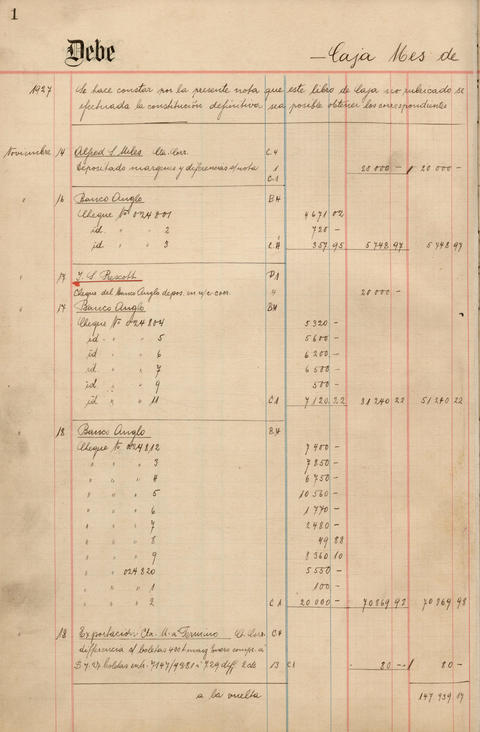 1
Debe — Caja Mes de
1927 Se hace constar por la presente nota que este libro de Caja no rubricado se
efectuada la constitución definitiva sea posible obtener los correspondientes
Noviembre 14 Alfred S. Miles Cta. Corr. C.4
Depositado marques y diferencias s/nota 1 20 000 — 20 000 —
C.1
" 16 Banco Anglo B4
Cheque No 024801 4671 02
id. " " 2 720 —
id " " 3 C.1 357 95 5748 97 5 748 97
" 17 J. S. Rescott
Cheque del Banco Anglo depos. en n/c corr. 4 20 000 —
17 Banco Anglo B4
Cheque No 024804 5 320 —
id " " 5 5 600 —
id " " 6 6 200 —
id " " 7 6 500 —
id " " 9 500 —
id " " 11 C1 7 120 22 31 240 22 51 240 22
" 18 Banco Anglo B.4
Cheque No 024812 7 400 —
" " " 3 7 850 —
" " " 4 6 750 —
" " " 5 10 560 —
" " " 6 1 770 —
" " " 7 2480 —
" " " 8 49 88
" " " 9 8 360 10
" " 024820 5 550 —
" " " 1 100 —
" " " 2 C1 20 000 — 70 869 98 70 869 98
" 18 Exportación Cta. M. a Termino Cta. Corr. C4
diferencia s/ boletas
13 C1 80 — 80 —
a la vuelta 147 939 17